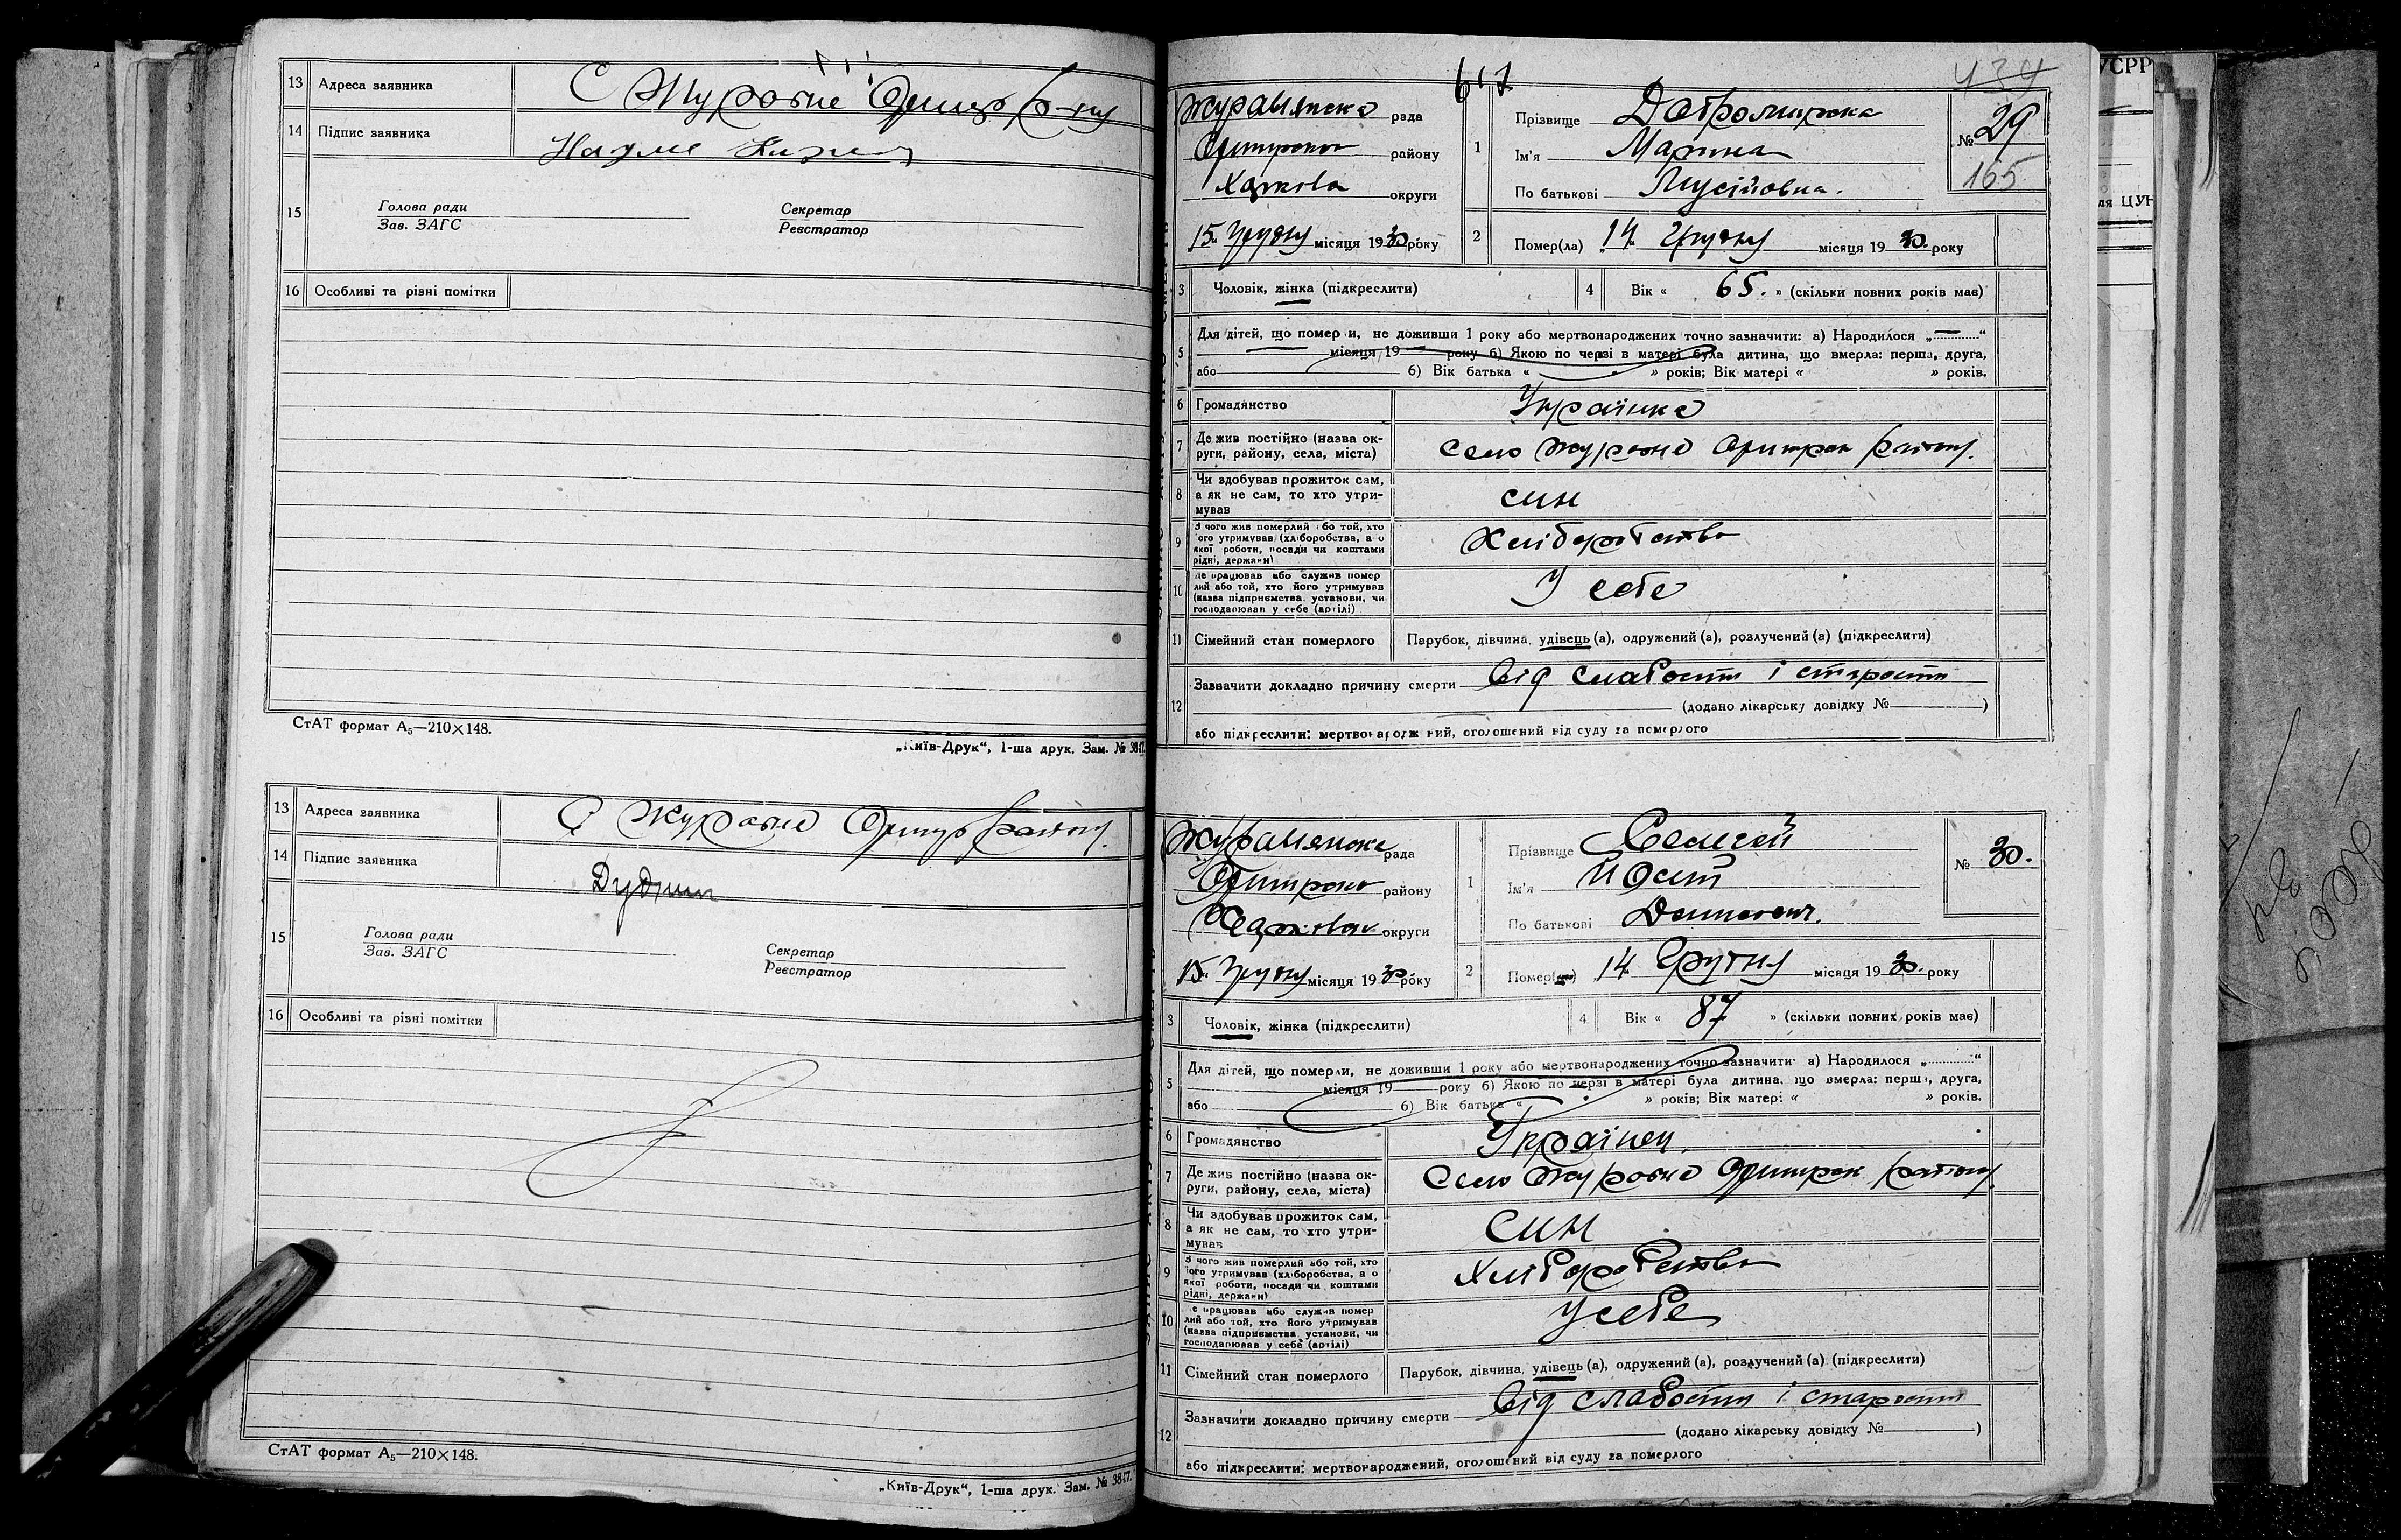 13 Адреса заявника С Журавне
14 Підпис заявника
15 Голова ради
Зав. ЗАГС
Секретар
Реєстратор
16 Особливі та різні помітки
СтАТ формат А₅—210×148.
„Київ-Друк“, 1-ша друк. Зам. № 3847.
13 Адреса заявника С Журавне району.
14 Підпис заявника
15 Голова ради
Зав. ЗАГС
Секретар
Реєстратор
16 Особливі та різні помітки
СтАТ формат А₅—210×148.
„Київ-Друк“, 1-ша друк. Зам. № 3847.
617
434
рада
району
округи
15 грудня місяця 1930 року
1 Прізвище
Ім'я Марина
По батькові Мусіївна.
№ 29
165
2 Помер(ла) „14 грудня місяця 1930. року
3 Чоловік, жінка (підкреслити)
4 Вік « 65. » (скільки повних років має)
5 Для дітей, що померли, не доживши 1 року або мертвонароджених точно зазначити: а) Народилося „ “
місяця 19 року б) Якою по черзі в матері була дитина, що вмерла: перша, друга,
або 6) Вік батька « » років; Вік матері « » років.
6 Громадянство Українка
7 Де жив постійно (назва ок-
руги, району, села, міста) Село Журавне району.
8 Чи здобував прожиток сам,
а як не сам, то хто утри-
мував син
9 З чого жив померлий або той, хто
його утримував (хліборобства, а о
якої роботи, посади чи коштами
рідні, держави) Хліборобство
10 Де працював або служив помер
лий або той, хто його утримував
(назва підприємства, установи, чи
господарював у себе (артілі) У себе
11 Сімейний стан померлого Парубок, дівчина, удівець (а), одружений (а), розлучений (а) (підкреслити)
12 Зазначити докладно причину смерти Від слабости і старости
(додано лікарську довідку № )
або підкреслити: мертвонароджений, оголошений від суду за померлого
рада
району
округи
15 грудня місяця 1930 року
1 Прізвище
Ім'я Йосип
По батькові
№ 30.
2 Помер(ла) „14 грудня місяця 1930. року
3 Чоловік, жінка (підкреслити)
4 Вік « 87 » (скільки повних років має)
5 Для дітей, що померли, не доживши 1 року або мертвонароджених точно зазначити: а) Народилося „ “
місяця 19 року б) Якою по черзі в матері була дитина, що вмерла: перша, друга,
або 6) Вік батька « » років; Вік матері « » років.
6 Громадянство Українец.
7 Де жив постійно (назва ок-
руги, району, села, міста) Село Журавне району.
8 Чи здобував прожиток сам,
а як не сам, то хто утри-
мував син
9 З чого жив померлий або той, хто
його утримував (хліборобства, а о
якої роботи, посади чи коштами
рідні, держави) Хліборобство
10 Де працював або служив помер
лий або той, хто його утримував
(назва підприємства, установи, чи
господарював у себе (артілі) У себе
11 Сімейний стан померлого Парубок, дівчина, удівець (а), одружений (а), розлучений (а) (підкреслити)
12 Зазначити докладно причину смерти Від слабости і старости
(додано лікарську довідку № )
або підкреслити: мертвонароджений, оголошений від суду за померлого
УСРР